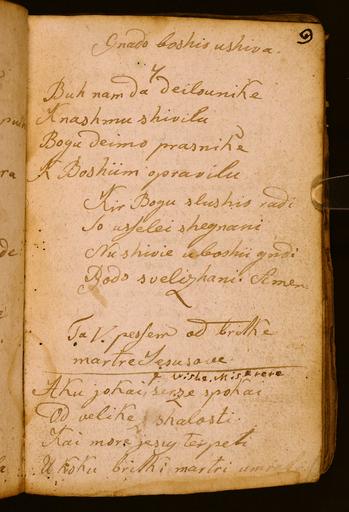 9
Gnado boshio ushiva.
Buh nam da deilounike
K nashmu shivilu
Bogu deimo prasnike
K Boshiim opravilu
Kir Bogu slushio radi
So usselei shegnani
Nu shivie uboshii gndi
Bodo svelizhani. Amen
Ta V. pessem od britke
martre Jesusove.
Vishe. Miserere
Aku jokai, serze spokai
Od velike shalosti.
Kai more jesus terpeti
U koku britki martri